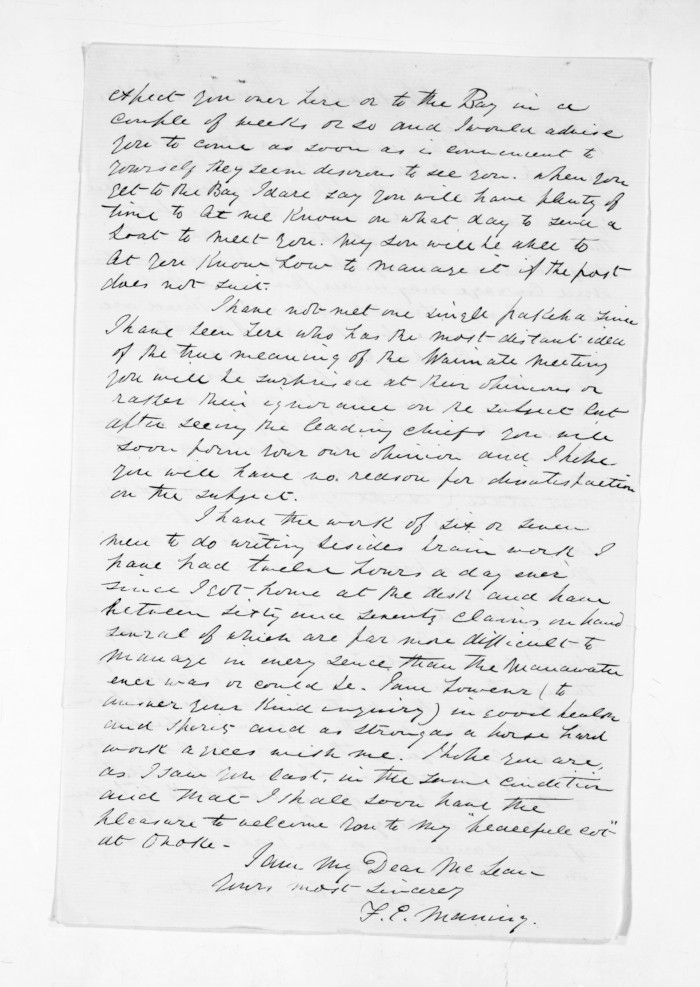 expect you over here or to the Bay in a
couple of weeks or so and I would advise
you to come as soon as is convenient to
yourself they seem desirous to see you. when you
get to the Bay I dare say you will have plenty of
time to let me know on what day to send a
boat to meet you. my son will be able to
let you know how to manage it if the post
does not suit.
I have not met one single pakeha since
I have been here who has the most distant idea
of the true meaning of the Waimate meeting
you will be surprised at their opinions or
rather their ignorance on the subject but
after seeing the leading chiefs you will
soon form your own opinion and I hope
you will have no reason for dissatisfaction
on the subject.
I have the work of six or seven
men to do writing besides brain work I
have had twelve hours a day ever
since I got home at the desk and have
between sixty and seventy claims on hand
several of which are far more difficult to
manage in every sence than the Manawatu
ever was or could be. I am however (to
answer your kind inquiry) in good health
and spirits and as strong as a horse hard
work agrees with me. I hope you are,
as I saw you last, in the same condition
and that I shall soon have the
pleasure to welcome you to my "peacefull cot"
at Onoke -
I am My Dear McLean
yours most sincerely
F. E. Maning.